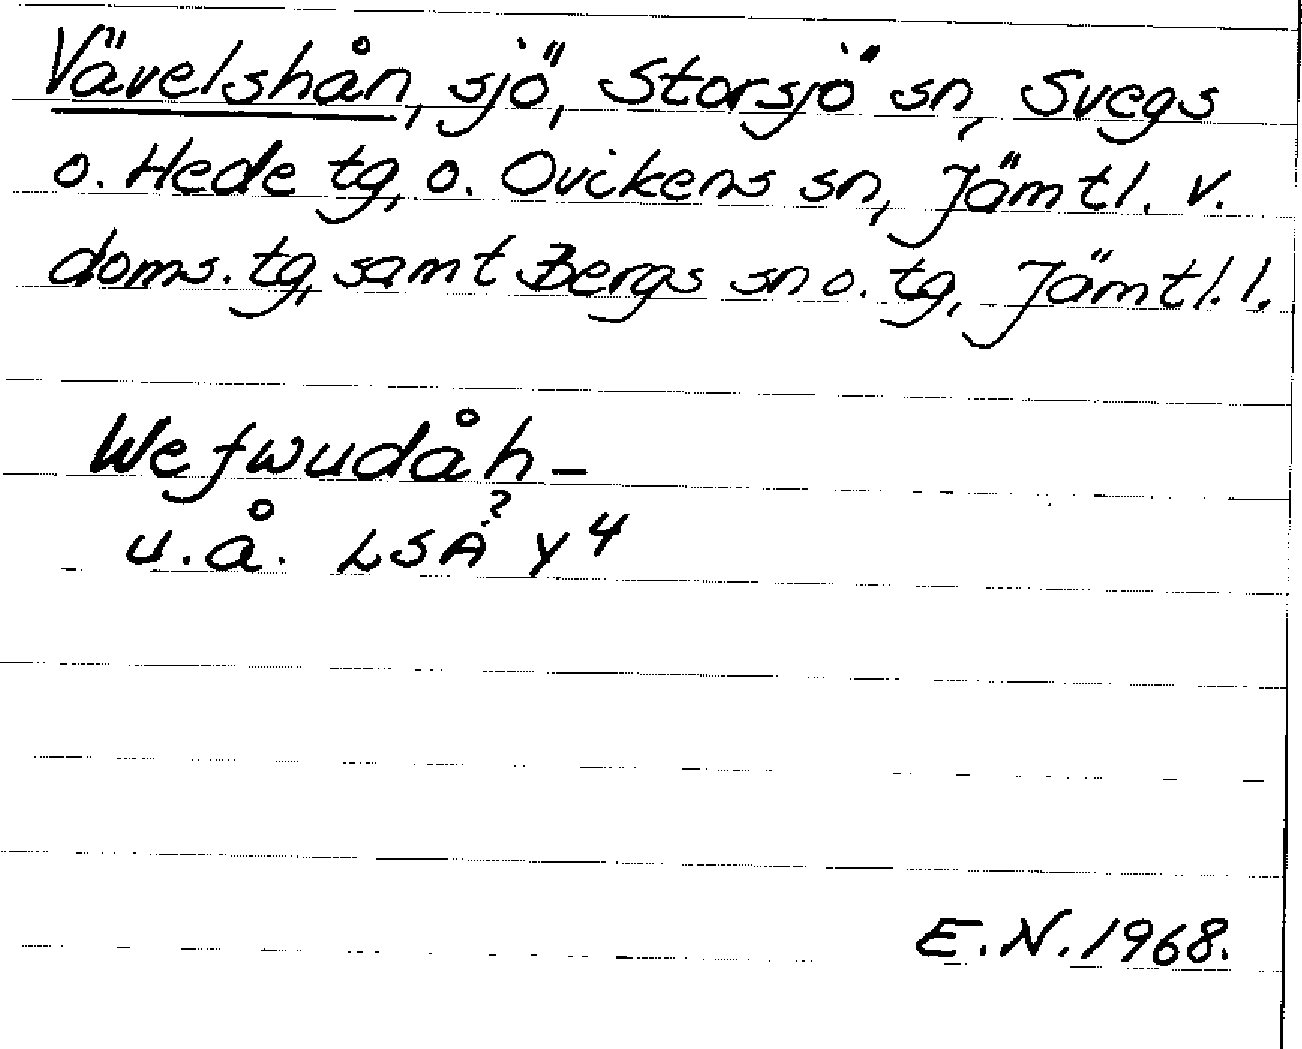 Vävelshån, sjö, Storsjö sn, Svegs
o. Hede tg, o. Ovikens sn, Jämtl. v.
doms. tg, samt Bergs sn o. tg, Jämtl. l.
Wefwudåh-
u.å. LSA? y 4
E.N. 1968.